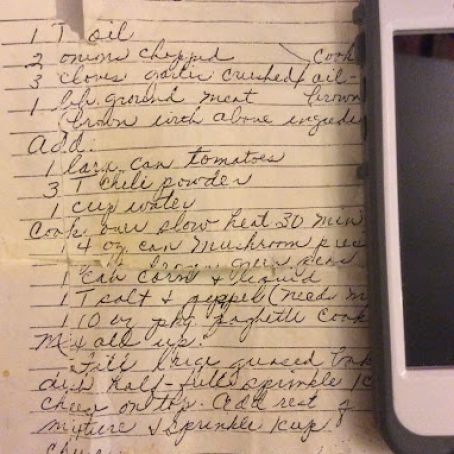 1 T oil
2 onions chopped Cook
3 cloves garlic crushed oil-
1 lb. ground meat brown
(brown with above ingredie
Add:
1 large can tomatoes
3 T chili powder
1 cup water
Cook over slow heat 30 min
1 4 oz can mushroom piec
green peas
1 can corn & liquid
1 T salt & pepper (needs m
1 10 oz pkg spaghetti Cook
Mix all up.
Fill large greased bak
dish half-full sprinkle 1c
cheese on top. Add rest of
mixture & sprinkle 1 cup